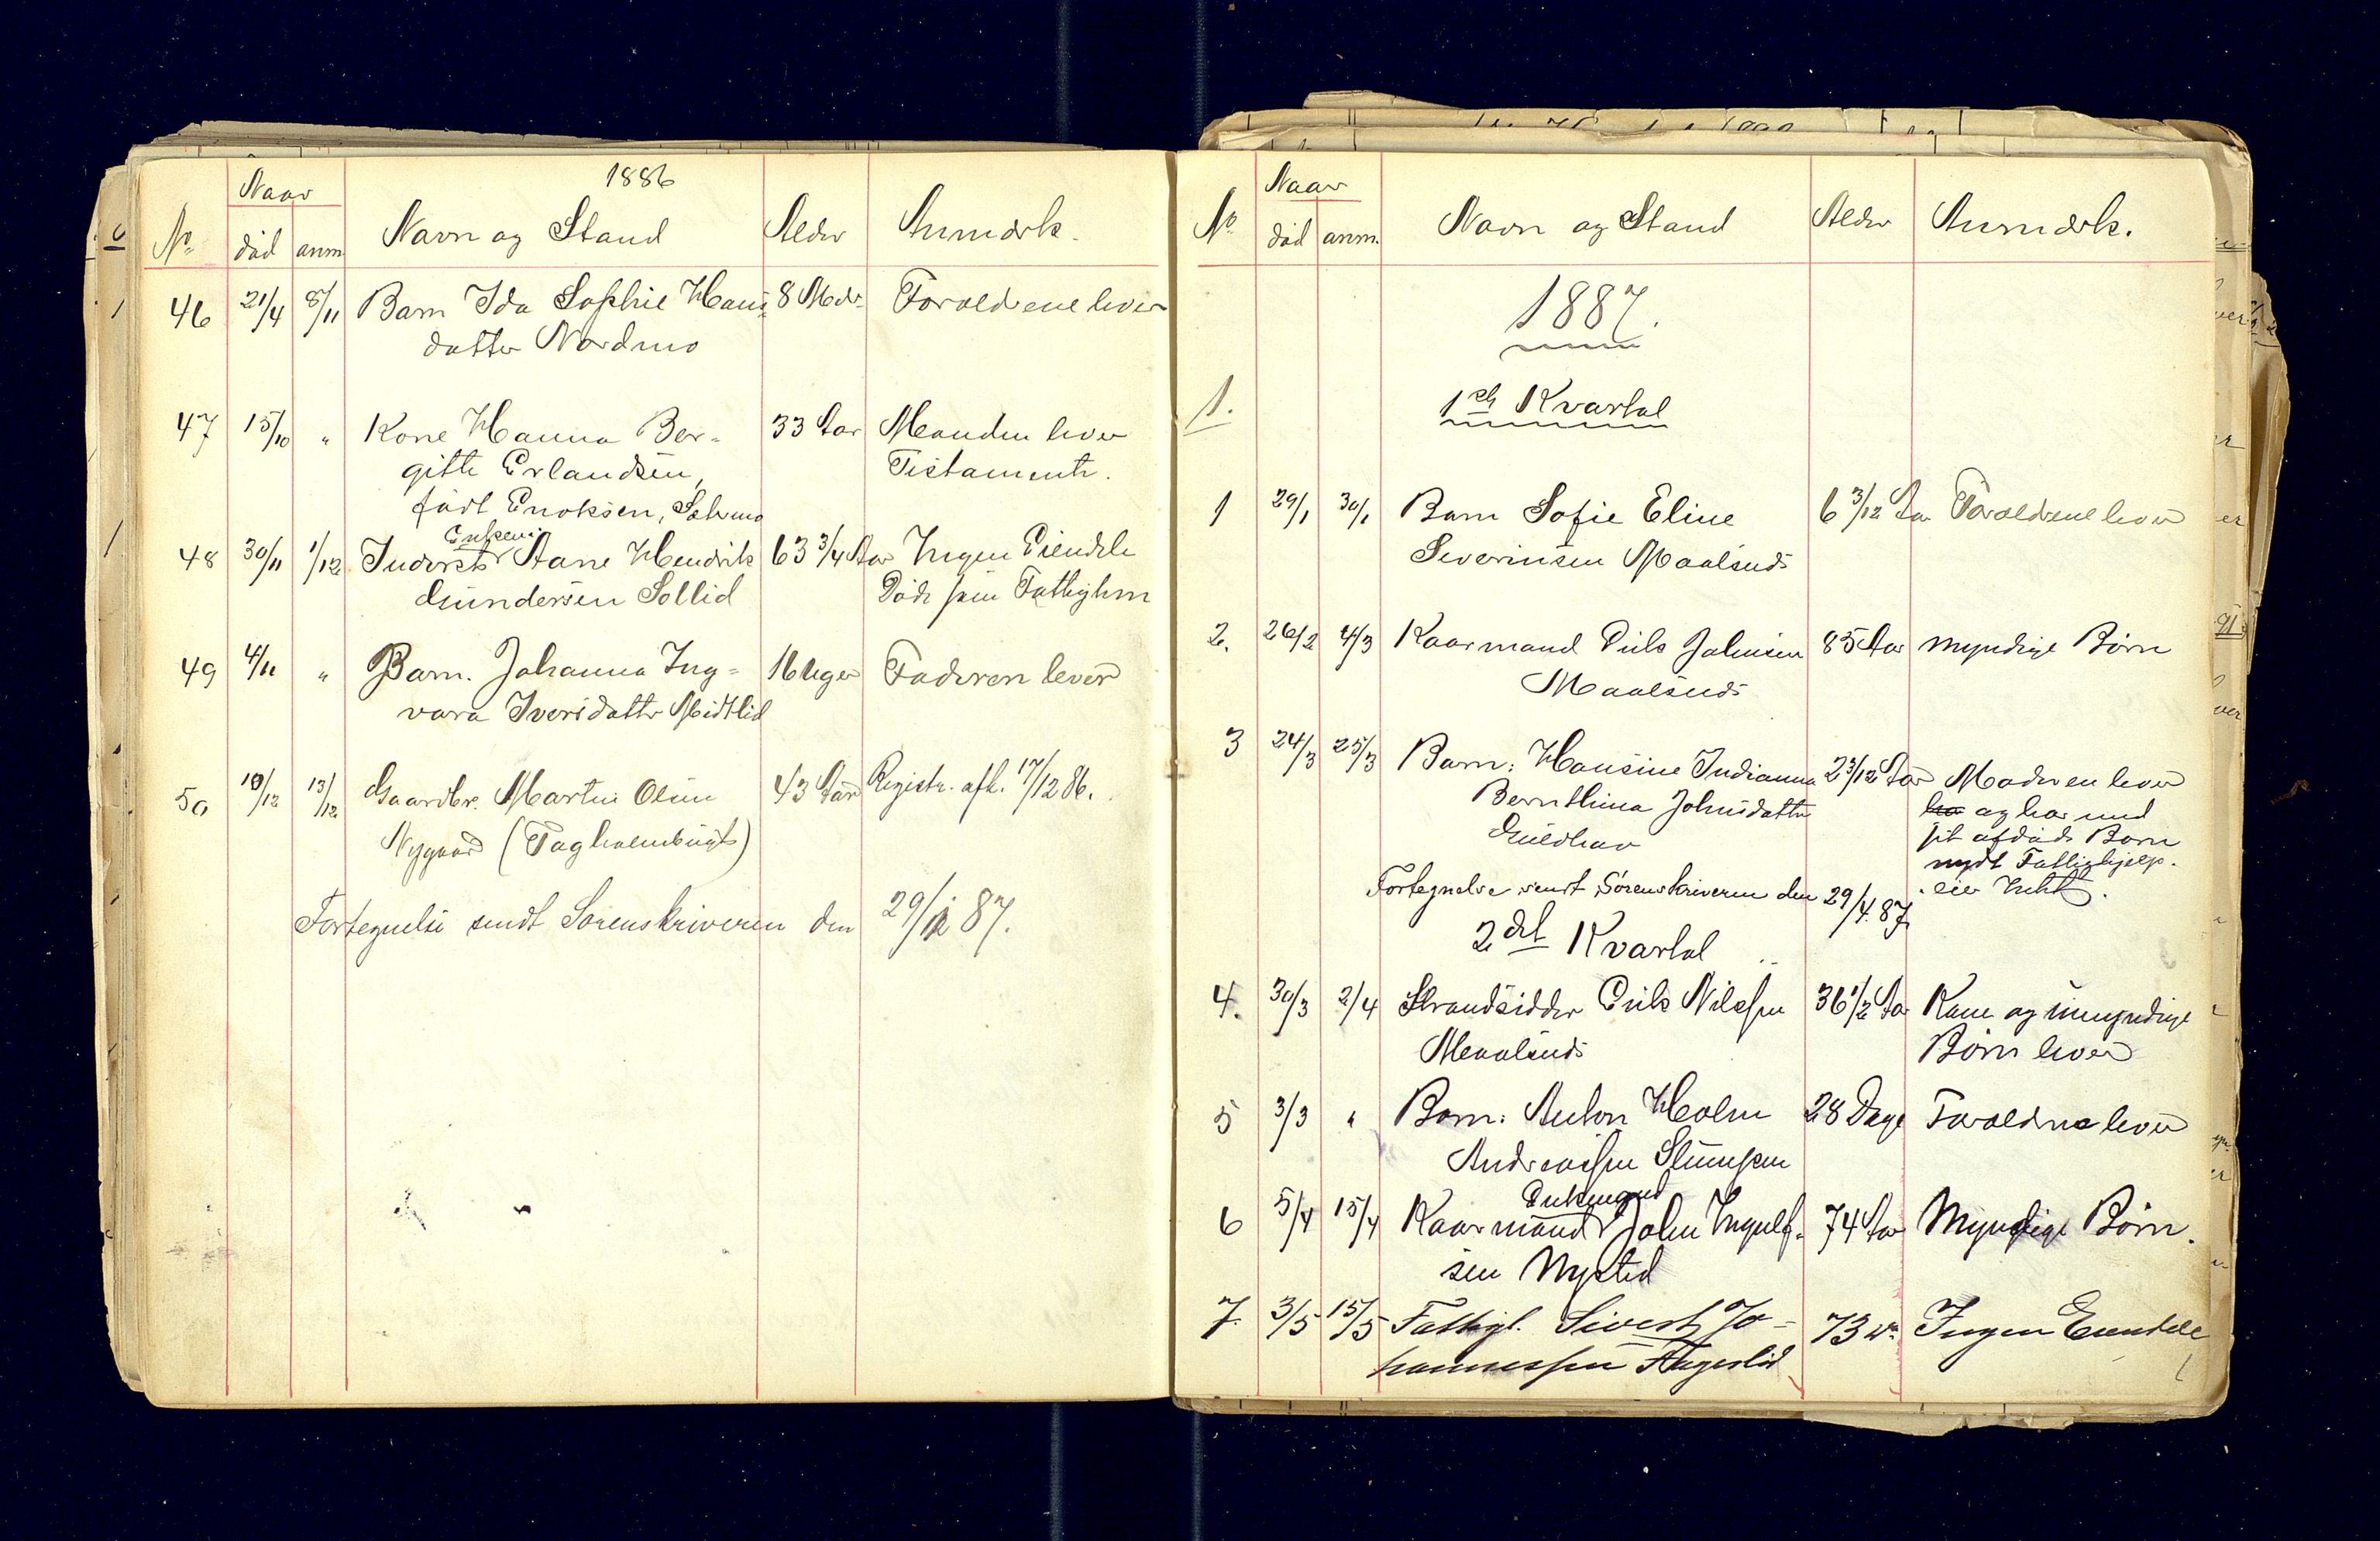 1886
Naar
No død anm Navn og Stand Alder Anmærk.
46 21/4 8/11 Barn Ida Sophie Hans- 8 Mdr. Foreldrene lever
datter Nordmo
47 15/10 " Kone Hanna Ber- 33 Aar Manden lever
gitte Erlandsen, Testamente.
født Enoksen,
Enken
48 30/11 1/12 Inderst Aane Hendrik 63 3/4 Aar Ingen Eiendele
Gundersen Sollid Døde som Fattiglem
49 4/11 " Barn. Johanna Ing- 16 Uger Faderen lever
vara Iversdatter Midtlid
50 10/12 13/12 Gaardbr. Martin Olsen 43 Aar Registr. afh. 17/12 86.
Nygaard (Tagholmbugt)
Fortegnelse sendt Sorenskriveren den 29/1 87.
Naar
No død anm. Navn og Stand Alder Anmærk.
1887.
1.
1ste Kvartal
1 29/1 30/1 Barn Sofie Eline 6 3/12 Aar Foreldrene lever
Severinsen Maalsnes
2. 26/2 4/3 Kaarmand Peder Johnsen 85 Aar Myndige Børn
Maalsnes
3 24/3 25/3 Barn: Hansine Indianna 2 3/12 Aar Moderen lever
Bernthina Johnsdatter og har med
Guldhav sit afdøde Barn
nydt Fattighjelp.
Fortegnelse sendt Sorenskriveren den 29/4. 87. eier Intet.
2det Kvartal
4. 30/3 2/4 Strandsidder Peder Nilssen 36 1/2 Aar Kone og umyndige
Maalsnes Børn lever
5 3/3 " Barn: Anton Holm 28 Dage Foreldrene lever
Andreassen
Enkemand
6 5/4 15/4 Kaarmand John Ingulf- 74 Aar Myndige Børn.
sen Nysted
7. 3/5 15/5 Fattigl. Sivert Jo- 73 Ingen Eiendele
hannessen Fagerlid